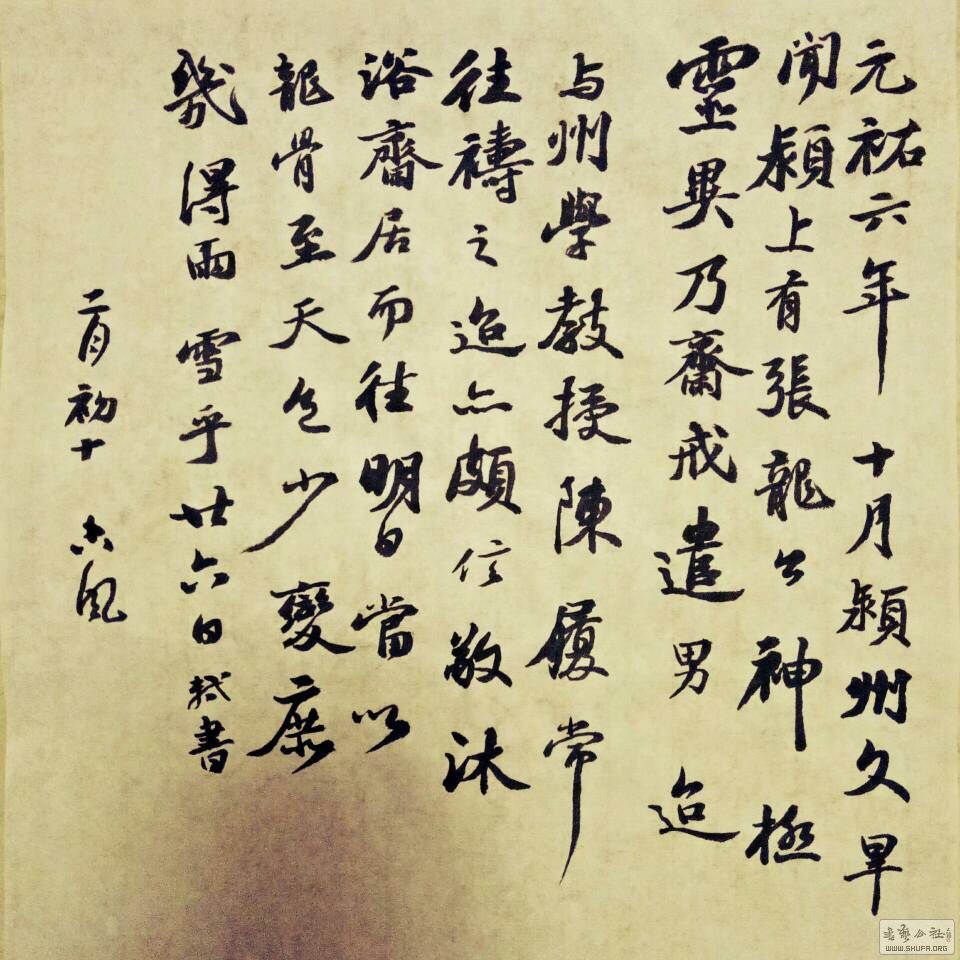 元祐六年十月潁州久旱
聞潁上有張龍公神極
靈異乃齋戒遣男迨
与州學教授陳履常
往禱之迨亦頗信敬沐
浴齋居而往明日當以
龍骨至天色少變庶
幾得雨雪乎廿六日軾書
二月初十 古風
书艺公社
WWW.SHUFA.ORG